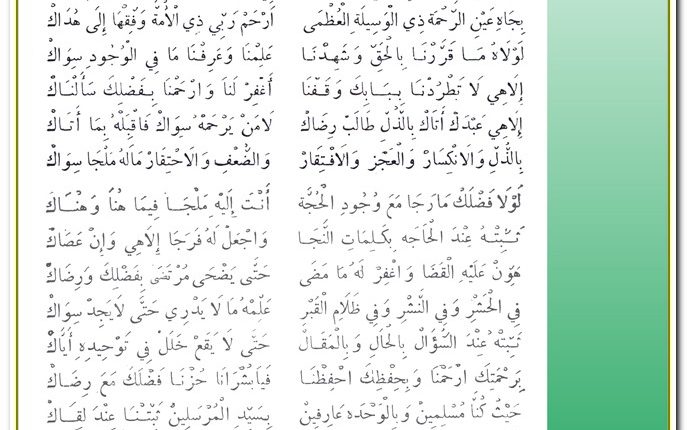 بِجَاهِ عَيْنِ الرَّحْمَةِ ذِي الْوَسِيلَةِ الْعُظْمَى أَرْحَمْ رَبِّي ذِي الْأُمَّةْ وَفِّقْهَا إِلَى هُدَاكْ
لَوْلَاهُ مَا قَرَّرْنَا بِالْحَقِّ وَشَهِدْنَا عَلِمْنَا وَعَرِفْنَا مَا فِي الْوُجُودِ سِوَاكْ
إِلَاهِي لَا تَطْرُدْنَا بِبَابِكَ وَقَفْنَا أَغْفِرْ لَنَا وَارْحَمْنَا بِفَضْلِكَ سَأَلْنَاكْ
إِلَاهِي عَبْدَكْ أَتَاكْ بِالذُّلِّ طَالَبْ رِضَاكْ لَامَنْ يَرْحَمُهْ سِوَاكْ فَاقْبَلْهُ بِمَا أَتَاكْ
بِالذُّلِّ وَالْانْكِسَارْ وَالْعَجْزِ وَالْافْتِقَارْ وَالضُّعْفِ وَالْاحْتِقَارْ مَالَهُ مَلْجَا سِوَاكْ
لَوْلَا فَضْلَكْ مَا رَجَا مَعَ وُجُودِ الْحُجَّةْ أَنْتَ إِلَيْهِ مَلْجَا فِيمَا هُنَا وَهْنَاكْ
ثَبِّتْهُ عِنْدَ الْحَاجَه بِكَلِمَاتِ النَّجَا وَاجْعَلْ لَهُ فَرَجَا إِلَاهِي وَإِنْ عَصَاكْ
هَوِّنْ عَلَيْهِ الْقَضَا وَاغْفِرْ لَهُ مَا مَضَى حَتَّى يَضْحَى مُرْتَضَى بِفَضْلِكَ وَرِضَاكْ
فِي الْحَشْرِ وَفِي النَّشْرِ وَفِي ظَلَامِ الْقَبْرِ عَلِّمْهُ مَا لَا يَدْرِي حَتَّى لَا يَجِدْ سِوَاكْ
ثَبِّتْهُ عِنْدَ السُّؤَالْ بِالْحَالِ وَبِالْمَقَالْ حَتَّى لَا يَقَعْ خَلَلْ فِي تَوْحِيدِهِ أَيَّاكْ
بِرَحْمَتِكَ ارْحَمْنَا وَبِحِفْظِكَ احْفِظْنَا فَيَابُشْرَانَا حُزْنَا فَضْلَكْ مَعَ رِضَاكْ
حَيْثُ كُنَّا مُسْلِمِينْ وَبِالْوَحْدَه عَارِفِينْ بِسَيِّدِ الْمُرْسَلِينْ ثَبِّتْنَا عِنْدَ لِقَاكْ